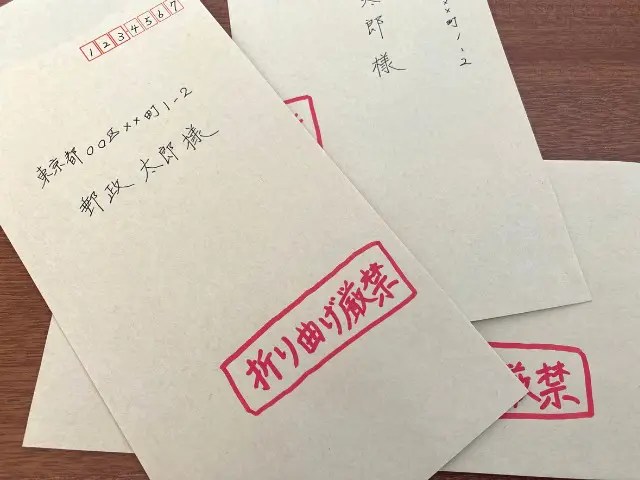 1234567
東京都〇〇区××町1-2
郵政 太郎様
折り曲げ厳禁
郎様
××町1-2
厳禁